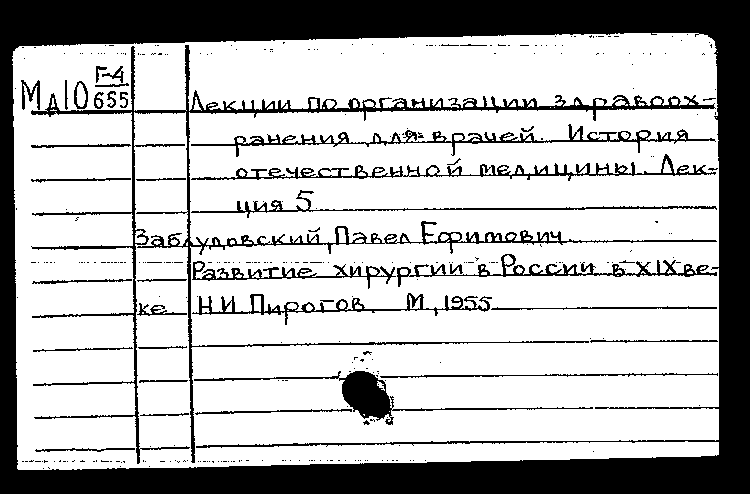 Г-4
МД10 655
Лекции по организации здравоох-
ранения для врачей. История
отечественной медицины. Лек-
ция 5
Заблудовский, Павел Ефимович
Развитие хирургии в России в XIX ве-
ке Н И Пирогов. М, 1955